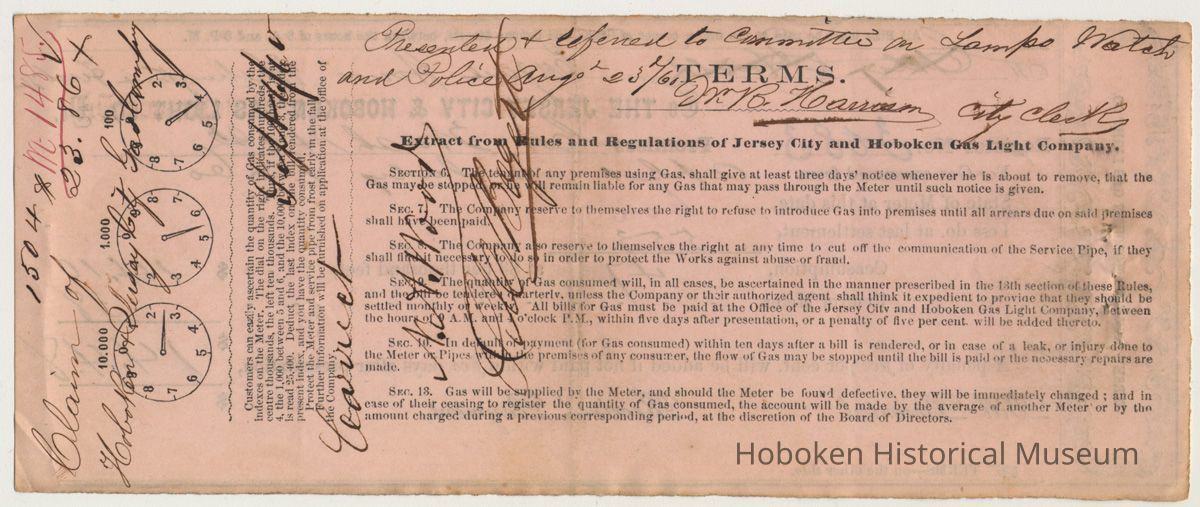 Presented & referred to Committee on Lamps Watch
and Police Aug 23/61
TERMS.
W. B. Harrison City Clerk
Extract from Rules and Regulations of Jersey City and Hoboken Gas Light Company.
SECTION 6. The tenant of any premises using Gas, shall give at least three days' notice whenever he is about to remove, that the
Gas may be stopped, or he will remain liable for any Gas that may pass through the Meter until such notice is given.
SEC. 7. The Company reserve to themselves the right to refuse to introduce Gas into premises until all arrears due on said premises
shall have been paid.
SEC. 8. The Company also reserve to themselves the right at any time to cut off the communication of the Service Pipe, if they
shall find it necessary to do so in order to protect the Works against abuse or fraud.
SEC. 9. The quantity of Gas consumed will, in all cases, be ascertained in the manner prescribed in the 13th section of these Rules,
and the bill be tendered quarterly, unless the Company or their authorized agent shall think it expedient to provide that they should be
settled monthly or weekly. All bills for Gas must be paid at the Office of the Jersey City and Hoboken Gas Light Company, between
the hours of A.M. and o'clock P.M., within five days after presentation, or a penalty of five per cent. will be added thereto.
SEC. 10. In default of payment (for Gas consumed) within ten days after a bill is rendered, or in case of a leak, or injury done to
the Meter or Pipes within the premises of any consumer, the flow of Gas may be stopped until the bill is paid or the necessary repairs are
made.
SEC. 13. Gas will be supplied by the Meter, and should the Meter be found defective, they will be immediately changed; and in
case of their ceasing to register the quantity of Gas consumed, the account will be made by the average of another Meter or by the
amount charged during a previous corresponding period, at the discretion of the Board of Directors.
1504 $ 23.86 X
Claim of
Hoboken Gas Company
10.000 1.000 100
2 3 4 5 7 8
2 3 4 5 7 8
2 3 4 5 7 8
Customers can easily ascertain the quantity of Gas consumed by the
indexes on the Meter. The dial on the right indicates hundreds, the
centre thousands, the left ten thousands. Thus, if the 10,000 be
4, the 1,000 between 5 and 6, and the
is read 25,400. Deduct the last index on the bill rendered from the
present index, and you have the quantity consumed.
Protect the Meter and service pipe from frost early in the fall.
Further information will be furnished on application at the office of
the Company.
Correct
Hoboken Historical Museum